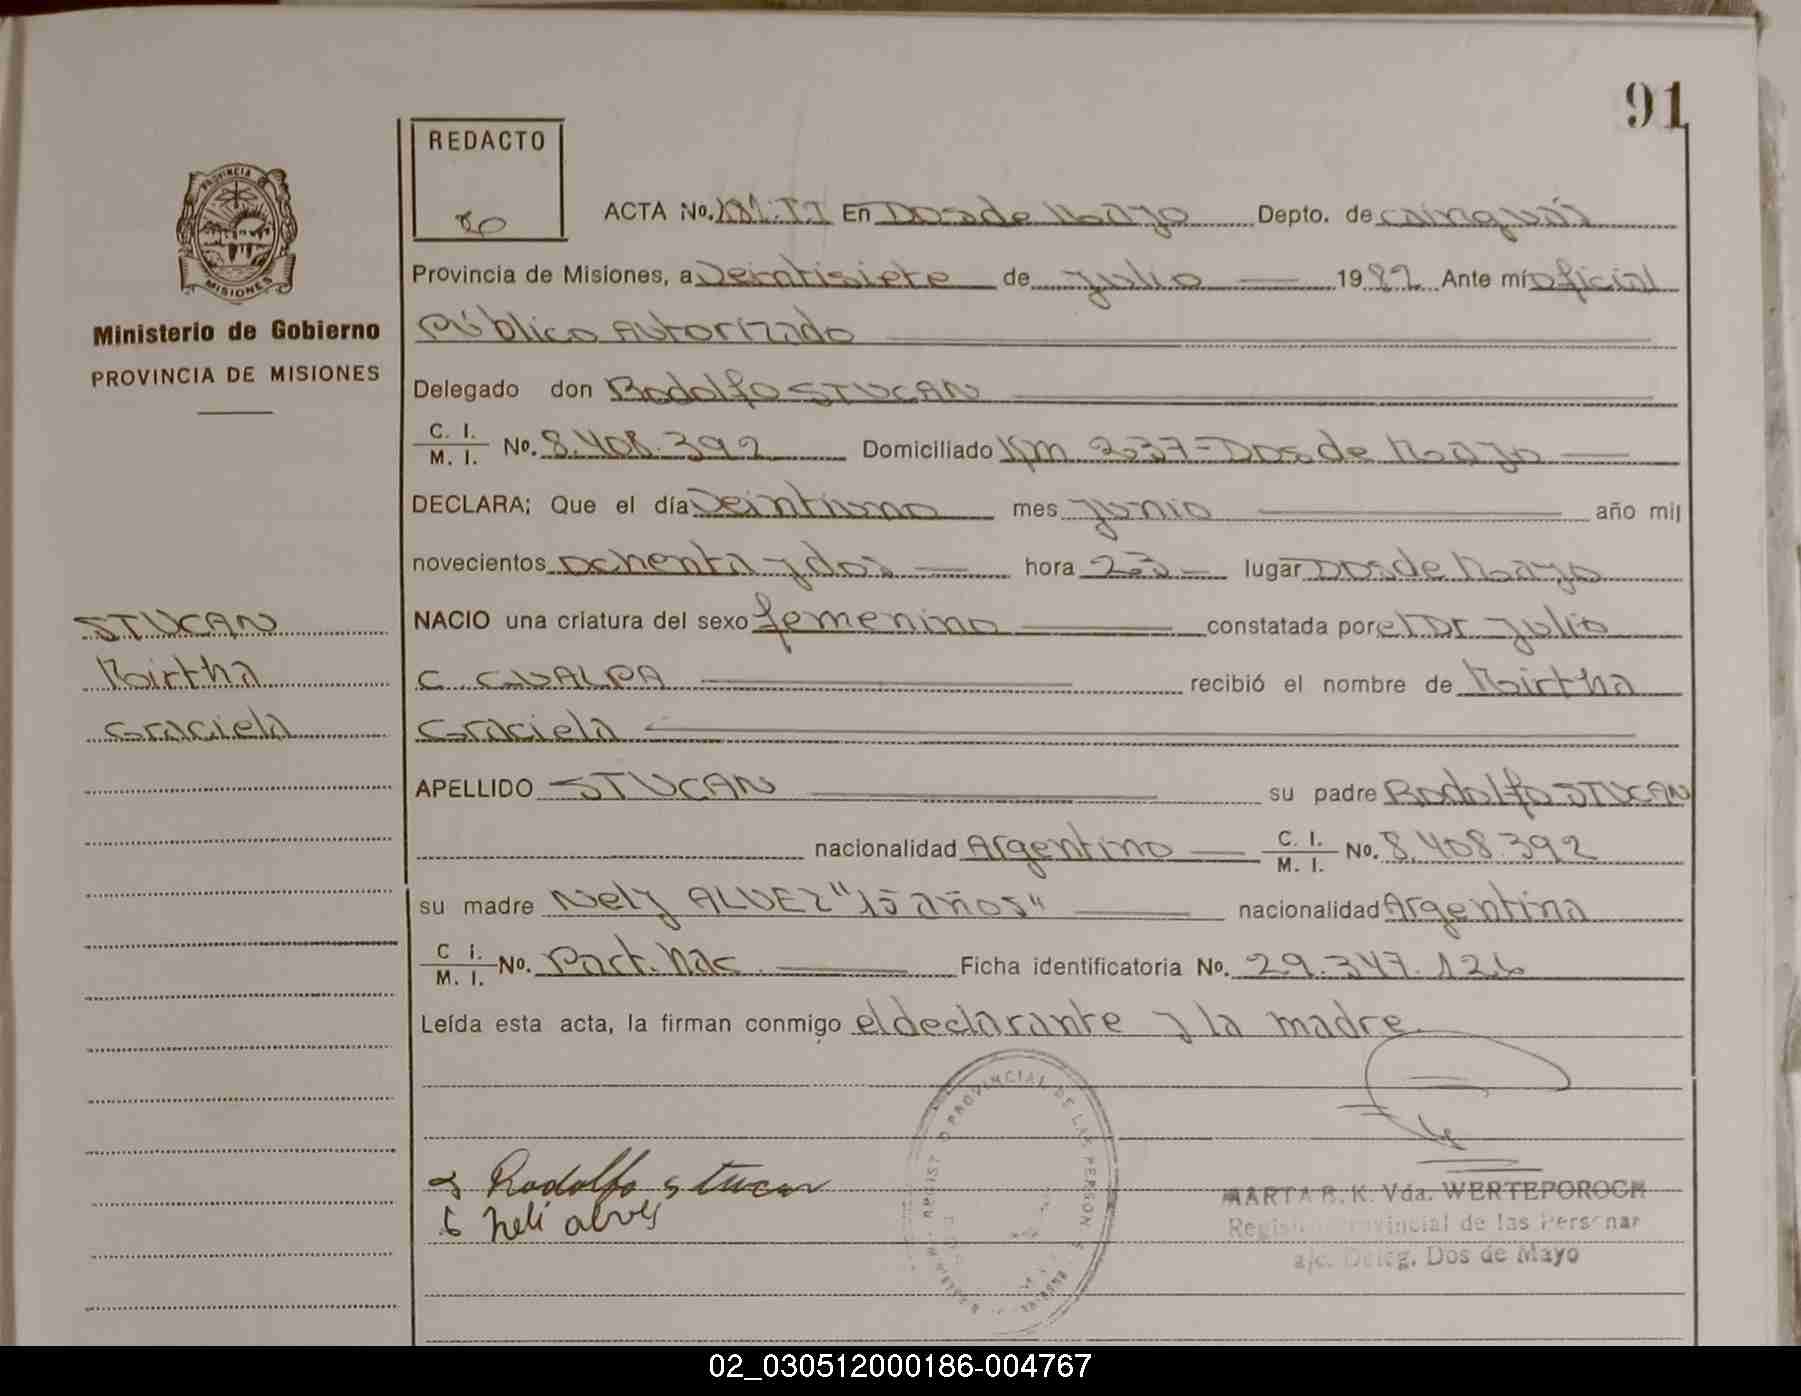 91
REDACTO
PROVINCIA
MISIONES
Ministerio de Gobierno
PROVINCIA DE MISIONES
ACTA No. 181-II En Dos de Mayo Depto. de cainguás
Provincia de Misiones, a Veintisiete de julio 1982 Ante mí oficial
Público Autorizado
Delegado don Rodolfo STUCAN
C. I. / M. I. No. 8.408.392 Domiciliado Km 237-Dos de Mayo
DECLARA; Que el día Veintiuno mes junio año mil
novecientos ochenta y dos hora 23 lugar Dos de Mayo
NACIO una criatura del sexo femenino constatada por el Dr julio
C CUALPA recibió el nombre de Mirtha
Graciela
STUCAN
Mirtha
Graciela
APELLIDO STUCAN su padre Rodolfo STUCAN
nacionalidad Argentino C. I. / M. I. No. 8.408.392
su madre Nely ALVEZ "15 años" nacionalidad Argentina
C I. / M. I. No. Part. Nac. Ficha identificatoria No. 29.347.126
Leída esta acta, la firman conmigo el declarante y la madre.
Rodolfo stucan
neli alves
PROVINCIAL DE LAS PERSON
MARTA B. K. Vda. WERTEPOROCH
Registro Provincial de las Personas
a/c. Deleg. Dos de Mayo
02_030512000186-004767